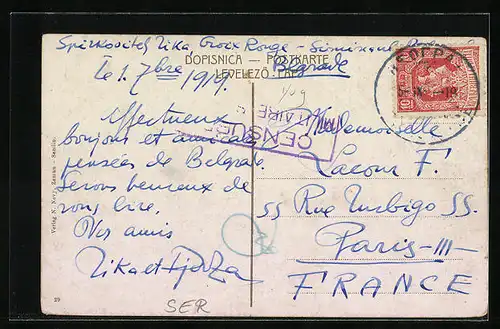 Spirkovitch Zika, Croix Rouge -
DOPISNICA — POSTKARTE
LEVELEZŐ-LAP
Belgrade
Le 1. 7bre 1919.
Yug
Affectueux
bonjours et amicales
pensées de Belgrade.
Serons heureux de
vous lire.
Vos amis
Zika et
CENSURE
MILITAIRE
10
Mademoiselle
Lacour F.
55 Rue Turbigo 55.
Paris - III -
FRANCE
SER
29
Verlag N. Zemun - Semlin.